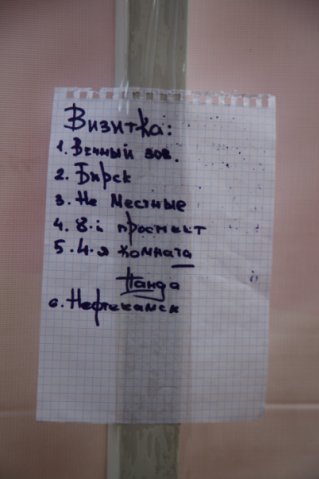 Визитка:
1. Вечный зов.
2. Бирск
3. Не местные
4. 8-й проспект
5. 4-я комната
Панда
6. Нефтекамск